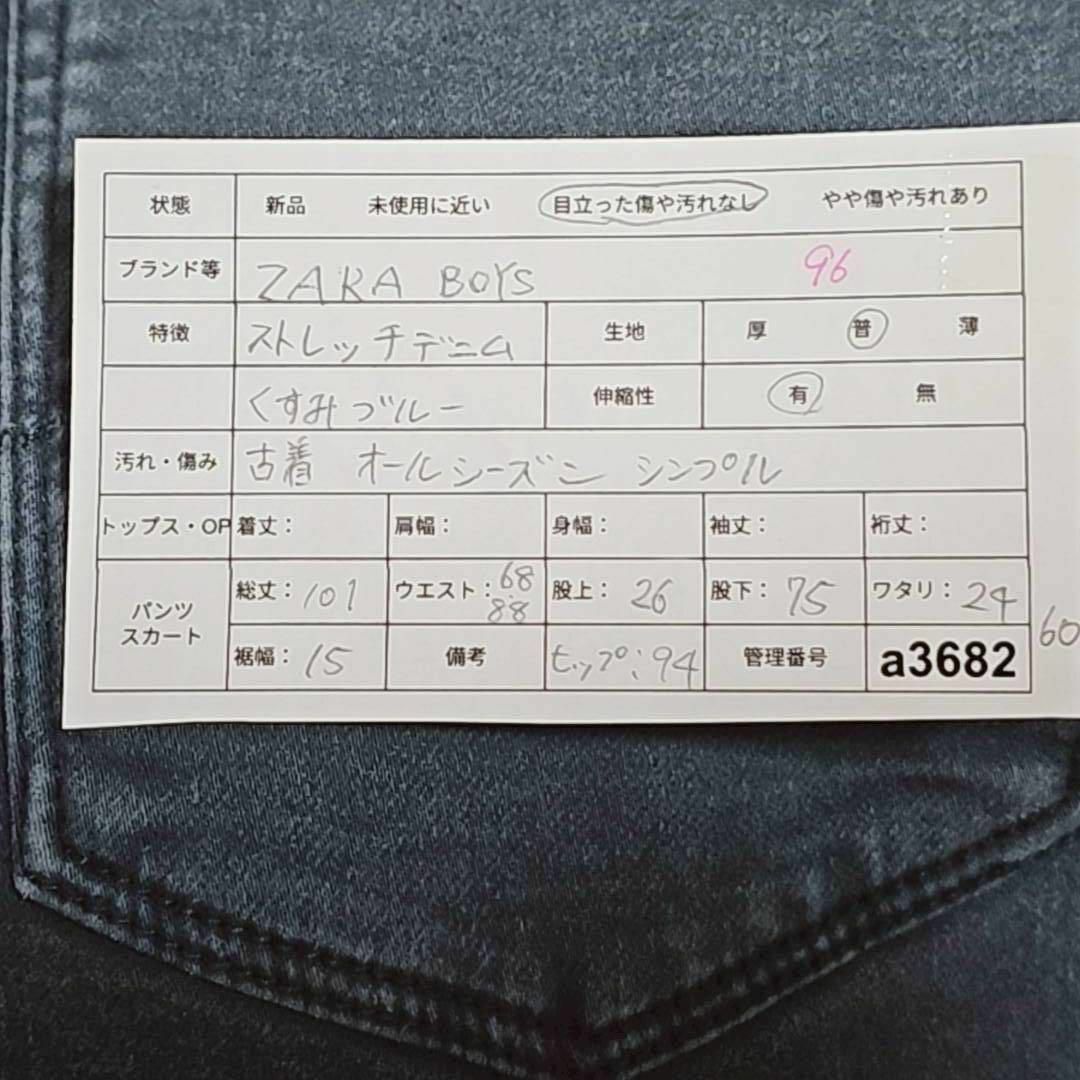 状態 新品 未使用に近い 目立った傷や汚れなし やや傷や汚れあり
ブランド等 ZARA BOYS 96
特徴 ストレッチデニム 生地 厚 普 薄
くすみブルー 伸縮性 有 無
汚れ・傷み 古着 オールシーズン シンプル
トップス・OP 着丈: 肩幅: 身幅: 袖丈: 裄丈:
パンツ スカート 総丈: 101 ウエスト: 68 88 股上: 26 股下: 75 ワタリ: 24
裾幅: 15 備考 ヒップ:94 管理番号 a3682 60